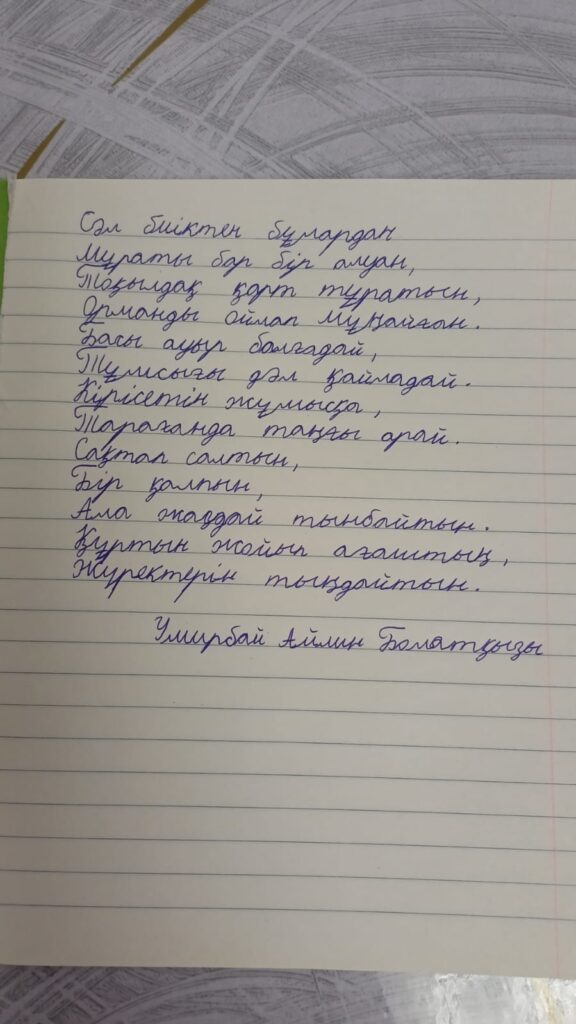 Сәл биіктен бұлардан
Мұраты бар бір алуан,
Тоқылдақ қарт тұратын,
Орманды ойлап мұңайған.
Басы ауыр балғадай,
Тұмсығы дәл қайладай.
Кірісетін жұмысқа,
Тарағанда таңғы арай.
Сақтап салтын,
Бір қалпын,
Ала жаздай тынбайтын.
Құртын жойып ағаштың,
Жүректерін тыңдайтын.
Умирбай Айлин Болатқызы